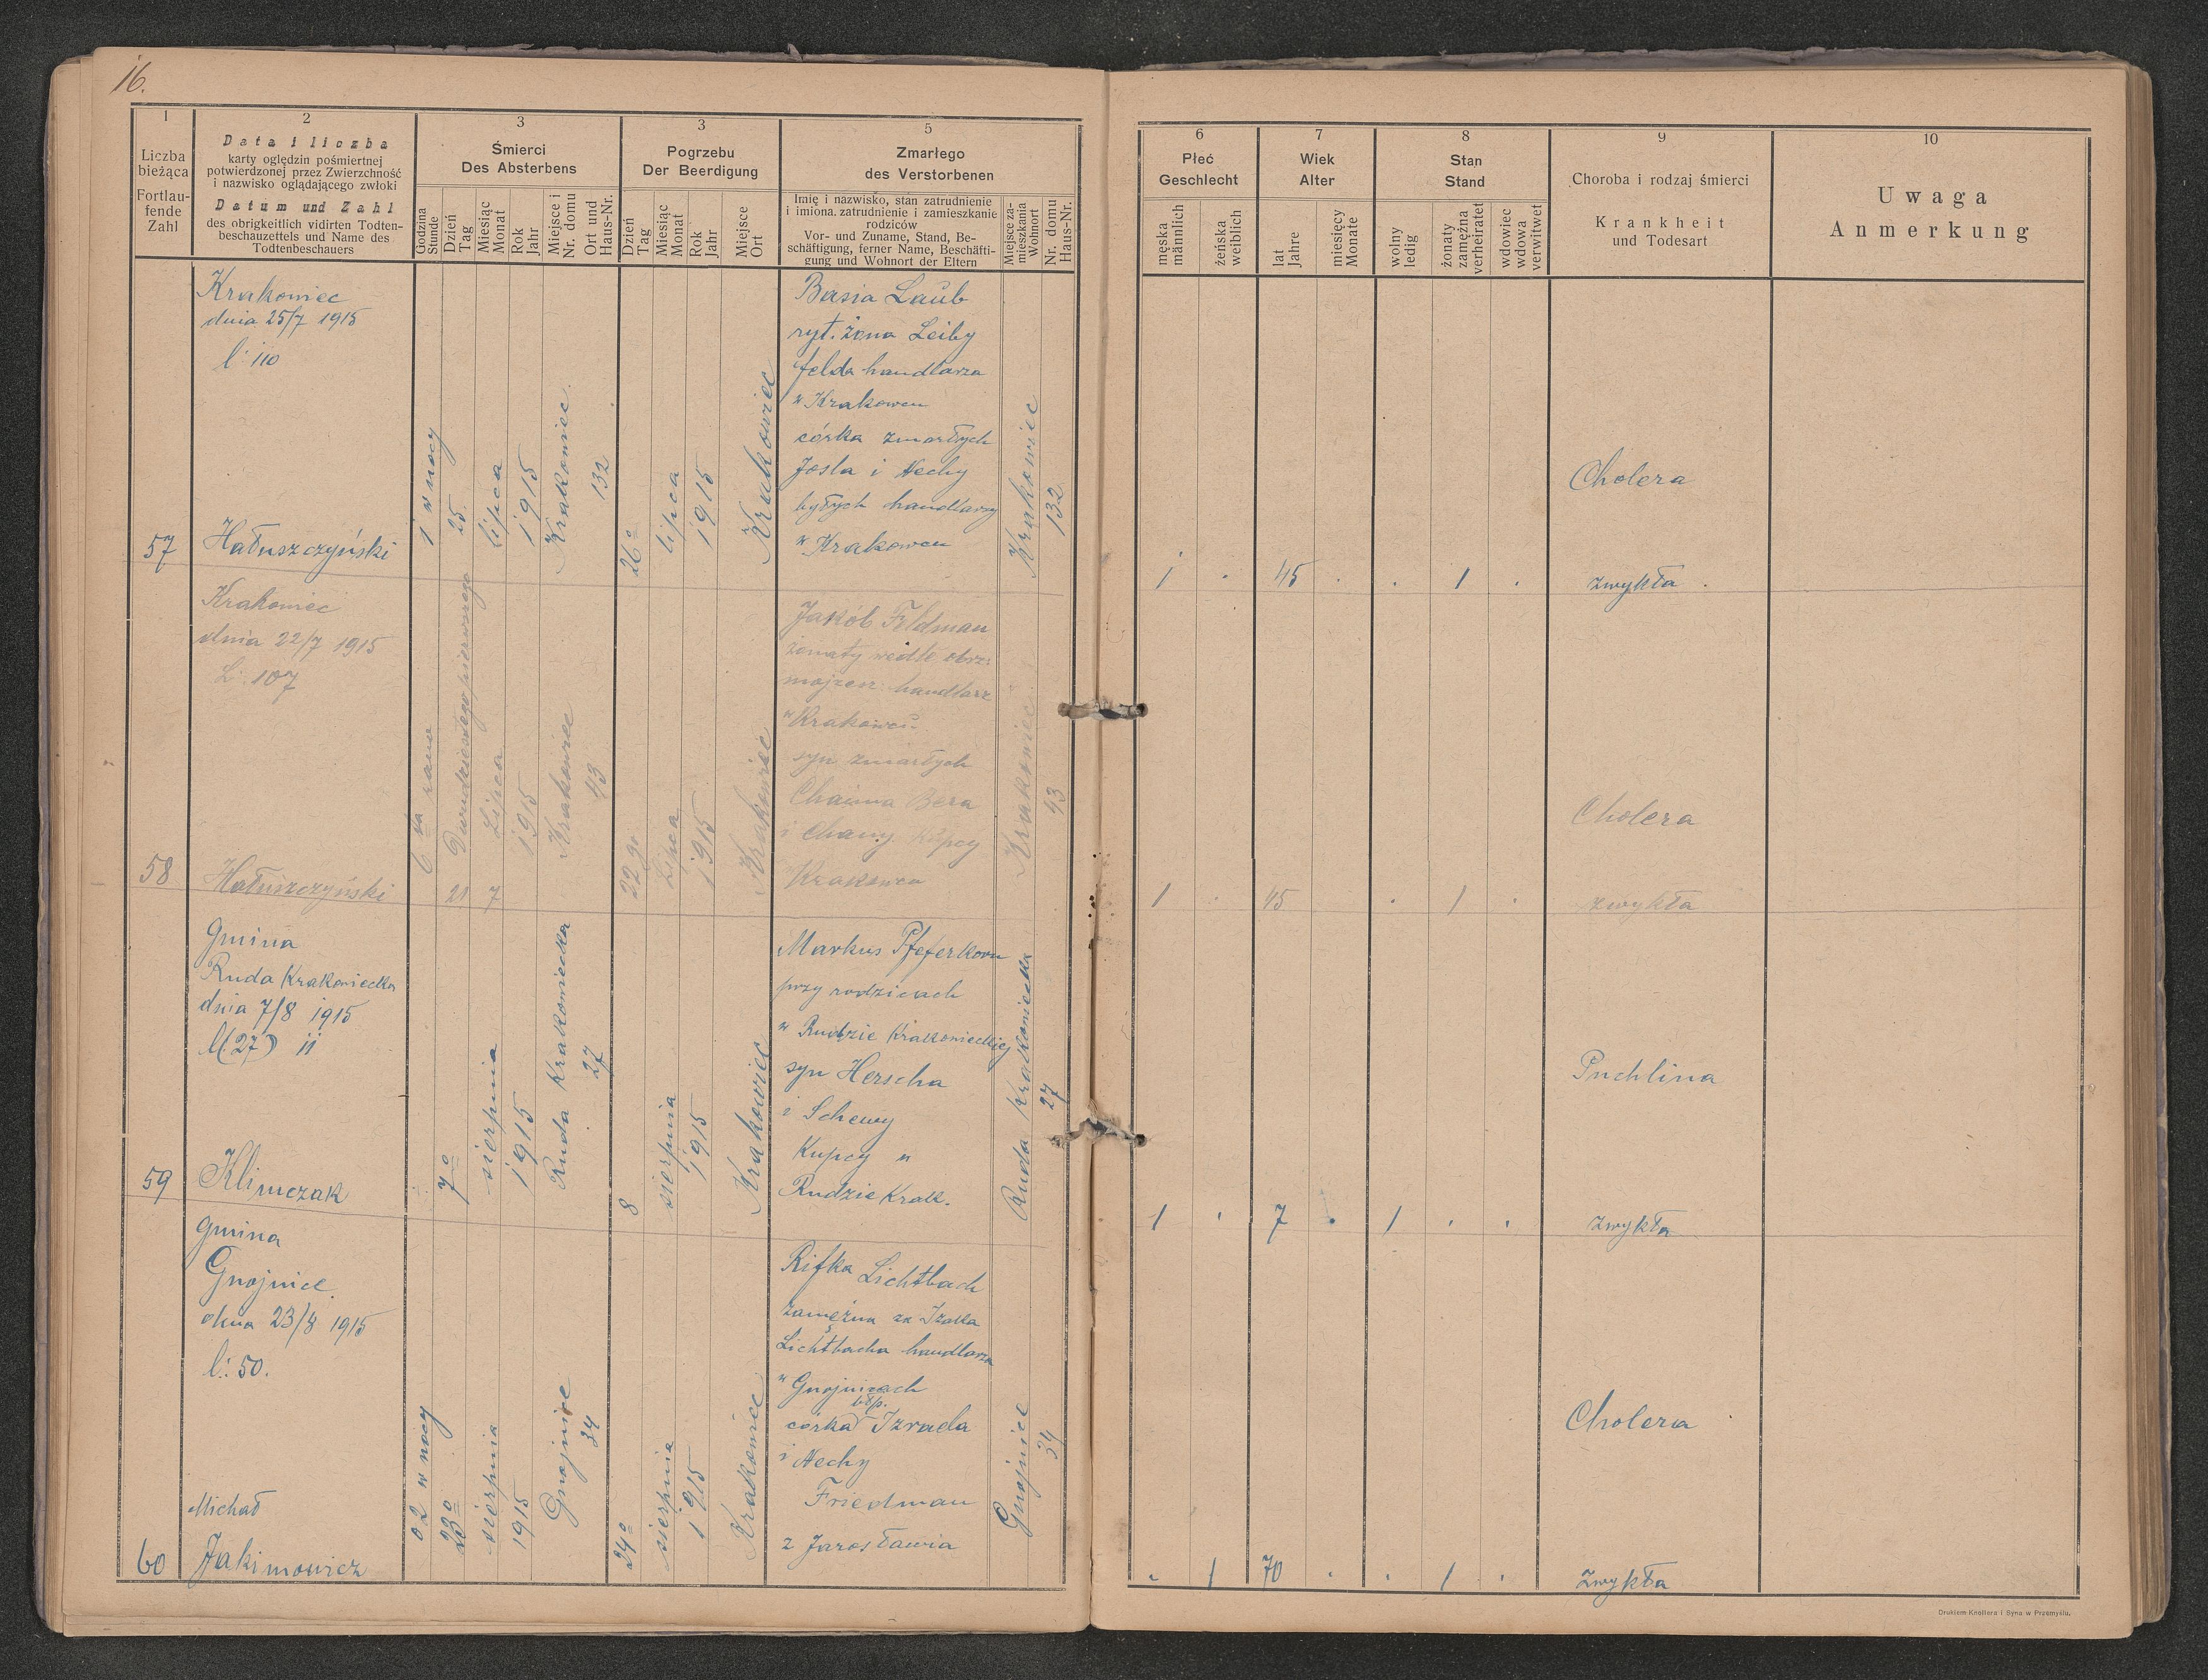 16.
1
2
3
3
5
Liczba bieżąca
Fortlaufende Zahl
Data i liczba
karty oględzin pośmiertnej
potwierdzonej przez Zwierzchność
i nazwisko oglądającego zwłoki
Datum und Zahl
des obrigkeitlich vidirten Todten-
beschauzettels und Name des
Todtenbeschauers
Śmierci
Des Absterbens
Godzina Stunde
Dzień Tag
Miesiąc Monat
Rok Jahr
Miejsce i Nr. domu
Ort und Haus-Nr.
Pogrzebu
Der Beerdigung
Dzień Tag
Miesiąc Monat
Rok Jahr
Miejsce Ort
Zmarłego
des Verstorbenen
Imię i nazwisko, stan zatrudnienie
i imiona. zatrudnienie i zamieszkanie
rodziców
Vor- und Zuname, Stand, Be-
schäftigung, ferner Name, Beschäfti-
gung und Wohnort der Eltern
Miejsce za-
mieszkania
Wohnort
Nr. domu
Haus-Nr.
6
7
8
9
10
Płeć
Geschlecht
męska
männlich
żeńska
weiblich
Wiek
Alter
lat
Jahre
miesięcy
Monate
Stan
Stand
wolny
ledig
żonaty
zamężna
verheiratet
wdowiec
wdowa
verwitwet
Choroba i rodzaj śmierci
Krankheit
und Todesart
Uwaga
Anmerkung
57
Krakowiec
dnia 25/7 1915
l: 110
Hałuszczyński
1 w nocy
25.
lipca
1915
Krakowiec
132
26o
lipca
1915
Krakowiec
Basia Laub
ryt. żona Leiby
felda handlarza
w Krakowcu
córka zmarłych
Josla i Nechy
byłych handlarzy
w Krakowcu
Krakowiec
132
1 . 45 . . 1 .
Cholera
zwykła.
58
Krakowiec
dnia 22/7 1915
L: 107
Hałuszczyński
6 ta rano
Dwudziestego pierwszego
21
Lipca
7
1915
Krakowiec
43
22go
Lipca
1915
Krakowiec
Jakób Feldman
żonaty wedle obrz:
mojżesz. handlarz
w Krakowcu
syn zmarłych
Chaima Bera
i Chany Kupcy
Krakowcu
Krakowiec
43
1 . 45 . 1 .
Cholera
zwykła
59
Gmina
Ruda Krakowiecka
dnia 7/8 1915
l(27) 11
Klimczak
7o
sierpnia
1915
Ruda Krakowiecka
27
8
sierpnia
1915
Krakowiec
Markus Pfeferkorn
przy rodzicach
w Rudzie Krakowieckiej
syn Herscha
i Schewy
Kupcy w
Rudzie Krak.
Ruda Krakowiecka
27
1 . 7 . 1 . .
Puchlina
zwykła
60
Gmina
Gnojnice
dnia 23/8 1915
l: 50.
Michał
Jakimowicz
o 2 w nocy
23o
sierpnia
1915
Gnojnice
34
24o
sierpnia
1915
Krakowiec
Rifka Lichtbach
zamężna za Izaka
Lichtbacha handlarza
w Gnojnicach
córka błp. Izraela
i Nechy
Friedman
z Jarosławia
Gnojnice
34
. 1 70 . . 1 .
Cholera
Zwykła
Drukiem Knollera i Syna w Przemyślu.